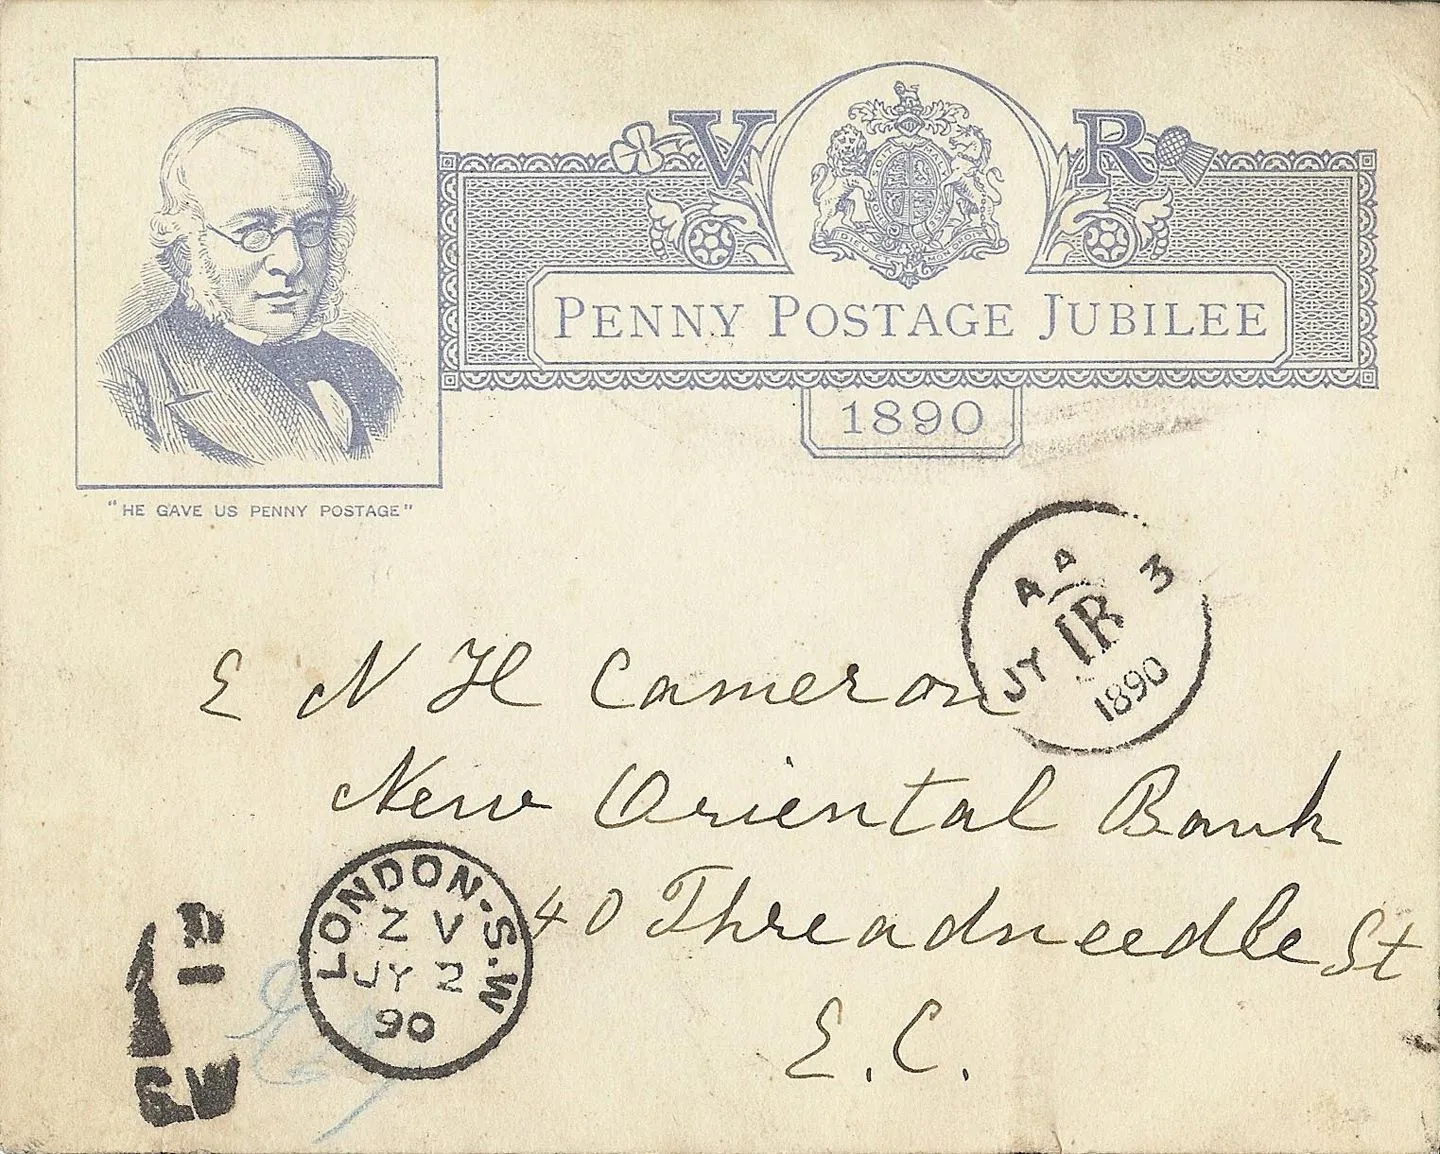 V R
DIEU ET MON DROIT
PENNY POSTAGE JUBILEE
1890
"HE GAVE US PENNY POSTAGE"
AA
JY IR 3
1890
E N H Cameron
New Oriental Bank
40 Threadneedle St
E. C.
LONDON·S.W
Z V
JY 2
90
S.W